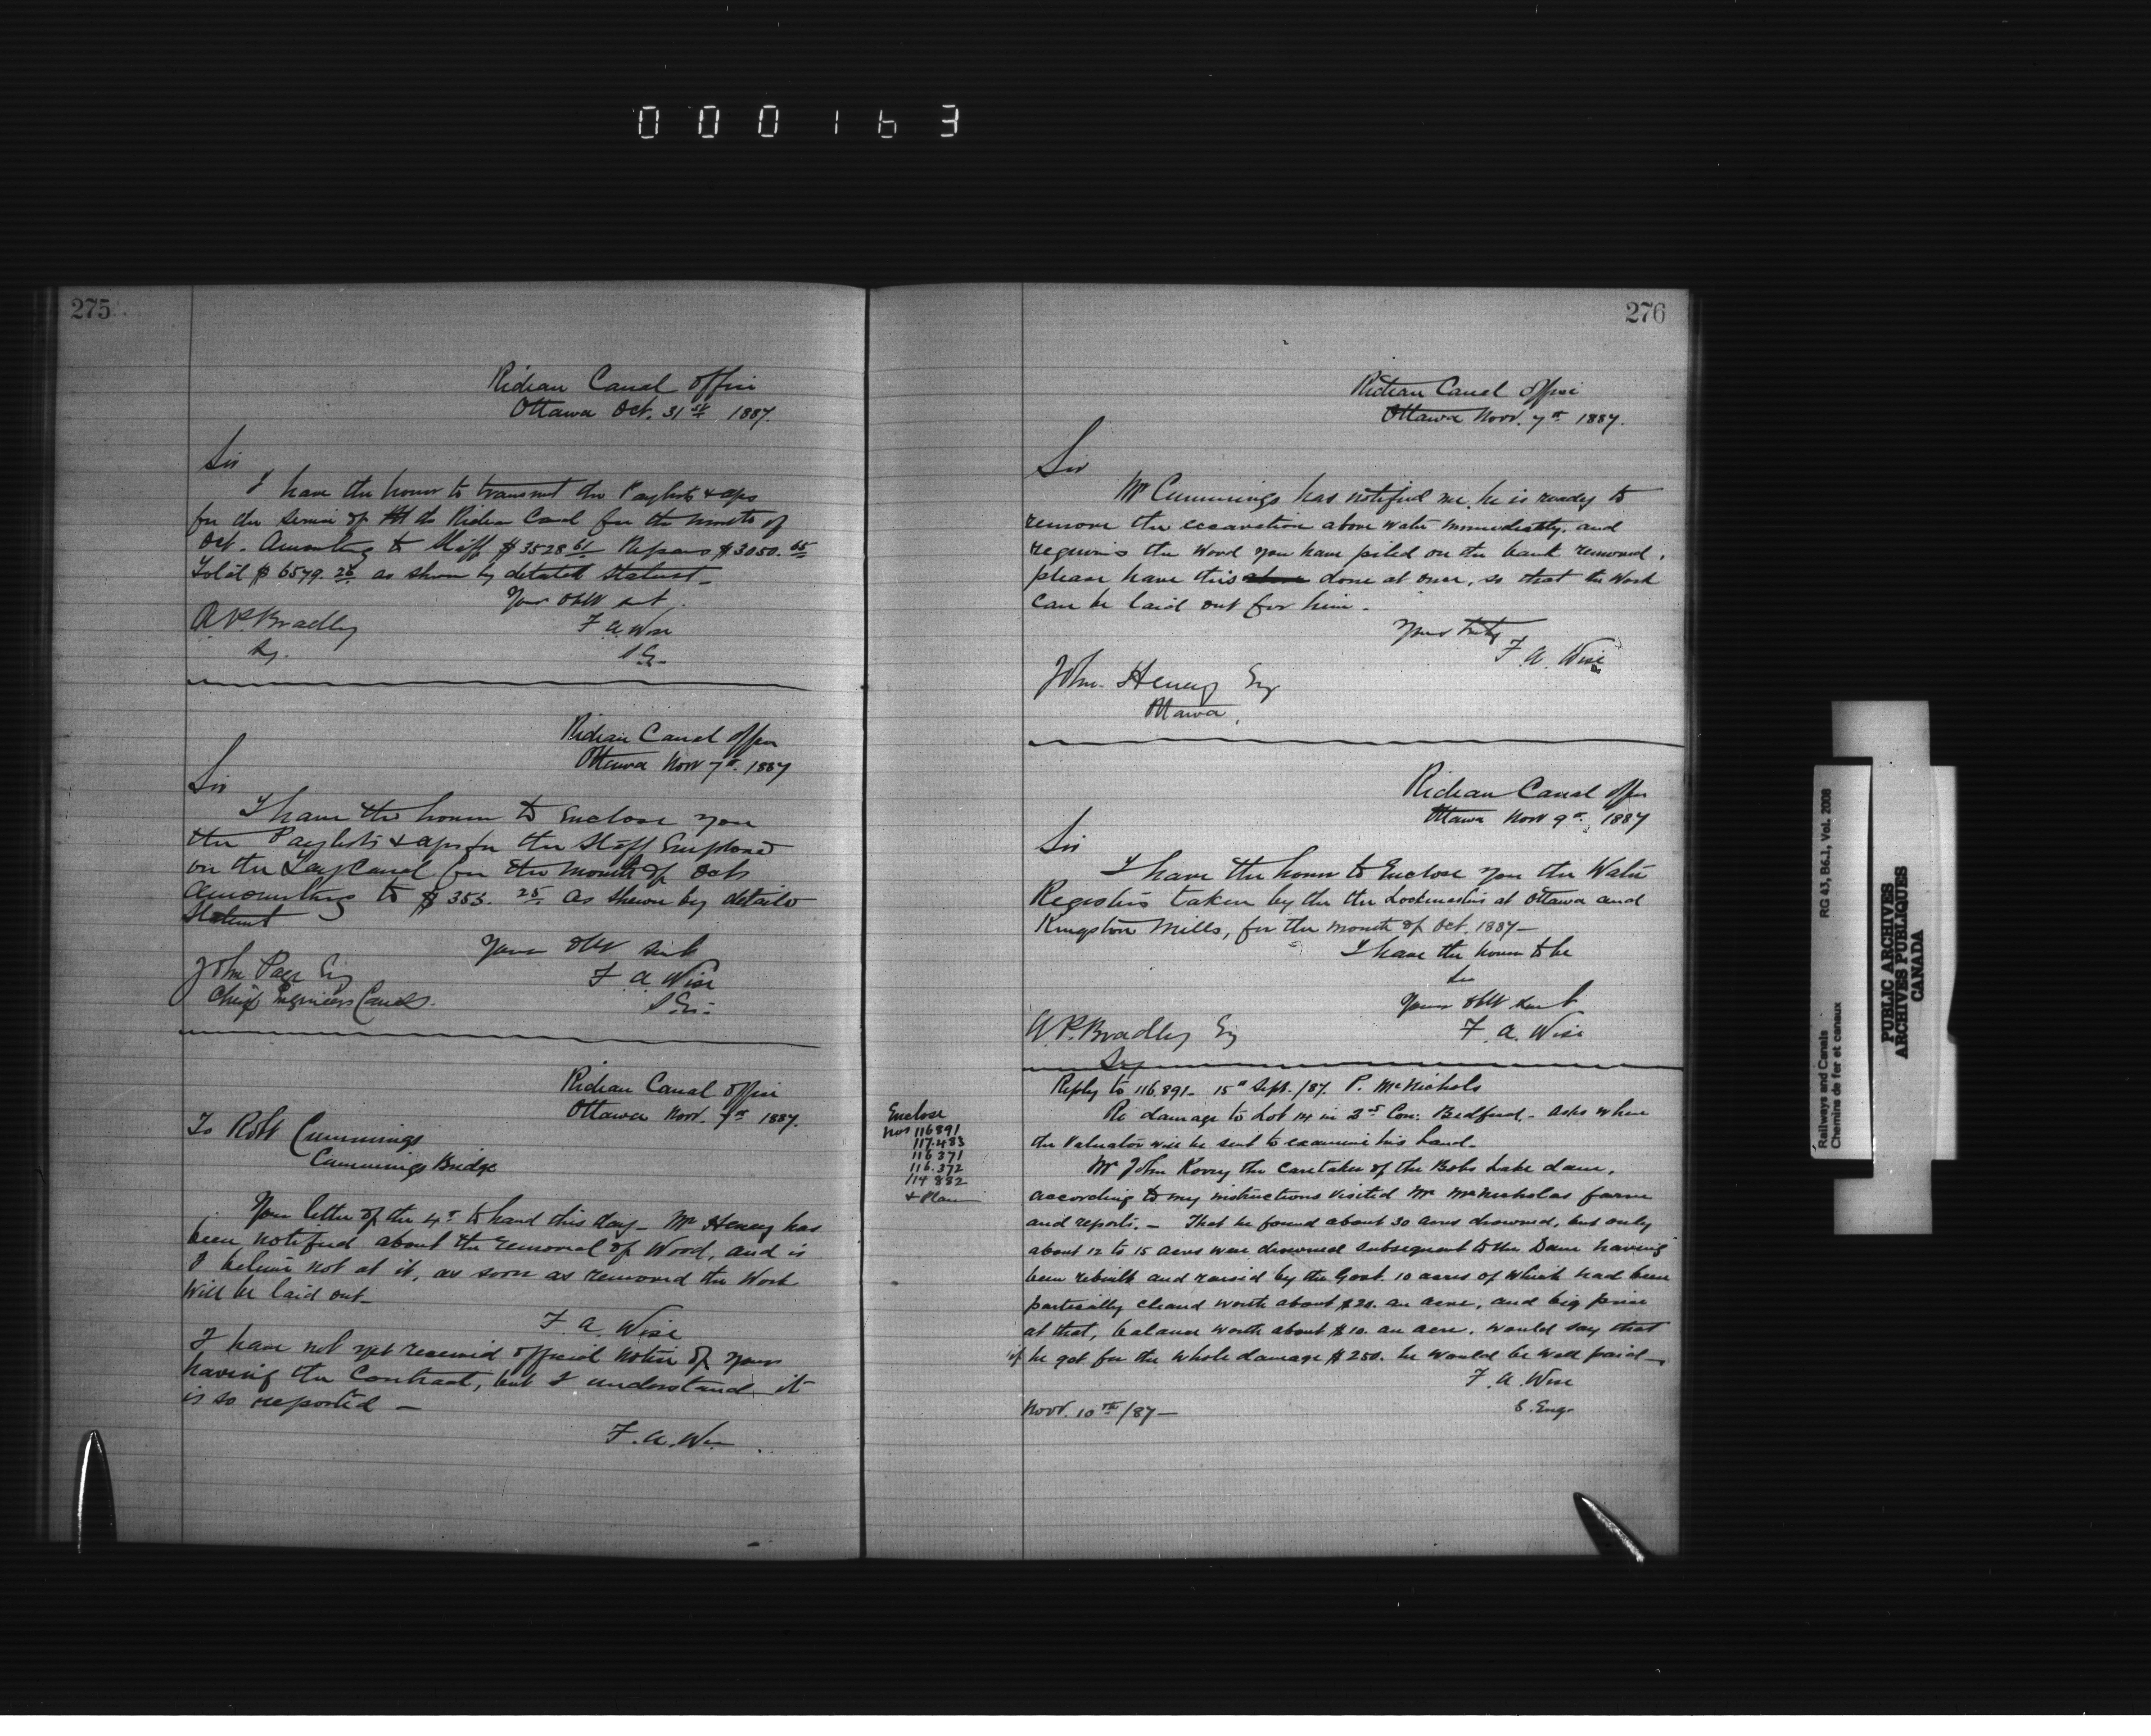 000163
275
Rideau Canal Office
Ottawa Oct. 31st 1887.
Sir
I have the honor to transmit the Paylists & a/cs
for the service of the Rideau Canal for the month of
Oct. Amounting to Staff $3528.61 Repairs $3050.65
Total $6579.26 as shown by detailed Statemt
Your Obt Sert.
A. P. Bradley F. A. Wise
Sy. S.E.
Rideau Canal Office
Ottawa Novr 7th. 1887
Sir
I have the honor to Enclose you
the Paylists & a/cs for the Staff Employed
on the Tay Canal for the month of Octr
Amounting to $353.25 as shewn by detailed
Statemt
Your Obt Sert
John Page Esq F. A. Wise
Chief Engineer Canals. S.E.
Rideau Canal Office
Ottawa Novr. 7th 1887.
To Robt Cummings
Cummings Bridge
Your letter of the 4th to hand this day. Mr Heney has
been notified about the removal of Wood, and is
I believe not at it, as soon as removed the Work
will be laid out.
F. A. Wise
I have not yet received official notice of your
having the Contract, but I understand it
is so reported —
F. A. Wise
276
Rideau Canal Office
Ottawa Novr. 7th 1887.
Sir
Mr Cummings has notified me he is ready to
remove the excavation above water immediately, and
requires the Wood you have piled on the bank removed.
please have this done at once, so that the Work
can be laid out for him.
Yours truly
F. A. Wise
John Heney Esq
Ottawa,
Rideau Canal Office
Ottawa Novr 9th 1887
Sir
I have the honor to Enclose you the Water
Registers taken by the the Lockmasters at Ottawa and
Kingston Mills, for the month of Oct. 1887—
I have the honor to be
Sir
Your Obt Sert
A. P. Bradley Esq F. A. Wise
Sy
Reply to 116.891 - 15th Sept. /87. P. McNichols
Enclose
Nos 116891
117.483
116371
116.372
114882
& Plan
Re damage to Lot 14 in 3rd Con: Bedford. - Asks when
the Valuator will be sent to examine his land.
Mr John Korry the Caretaker of the Bobs Lake dam,
according to my instructions visited Mr McNicholas farm
and reports. - That he found about 30 acres drowned, but only
about 12 to 15 acres were drowned subsequent to the Dam having
been rebuilt and raised by the Govt. 10 acres of which had been
partially cleared worth about $20. an acre, and big price
at that, balance worth about $10. an acre. would say that
if he got for the whole damage $250. he would be well paid—
F. A. Wise
Novr. 10th/87— S. Eng.
Railways and Canals RG 43, B6.1, Vol. 2008
Chemins de fer et canaux
PUBLIC ARCHIVES
ARCHIVES PUBLIQUES
CANADA